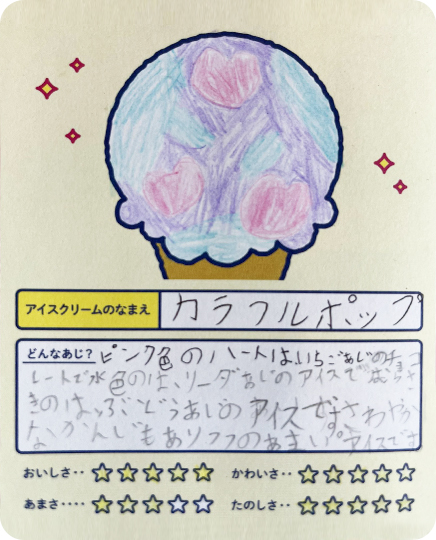 アイスクリームのなまえ カラフルポップ
どんなあじ? ピンク色のハートはいちごあじのチョコ
レートで水色のは、ソーダあじのアイスで
きのは、ぶどうあじのアイスです。さわやか
なかんじもありつつのあまいアイスです
おいしさ‥ かわいさ‥
あまさ‥‥ たのしさ‥